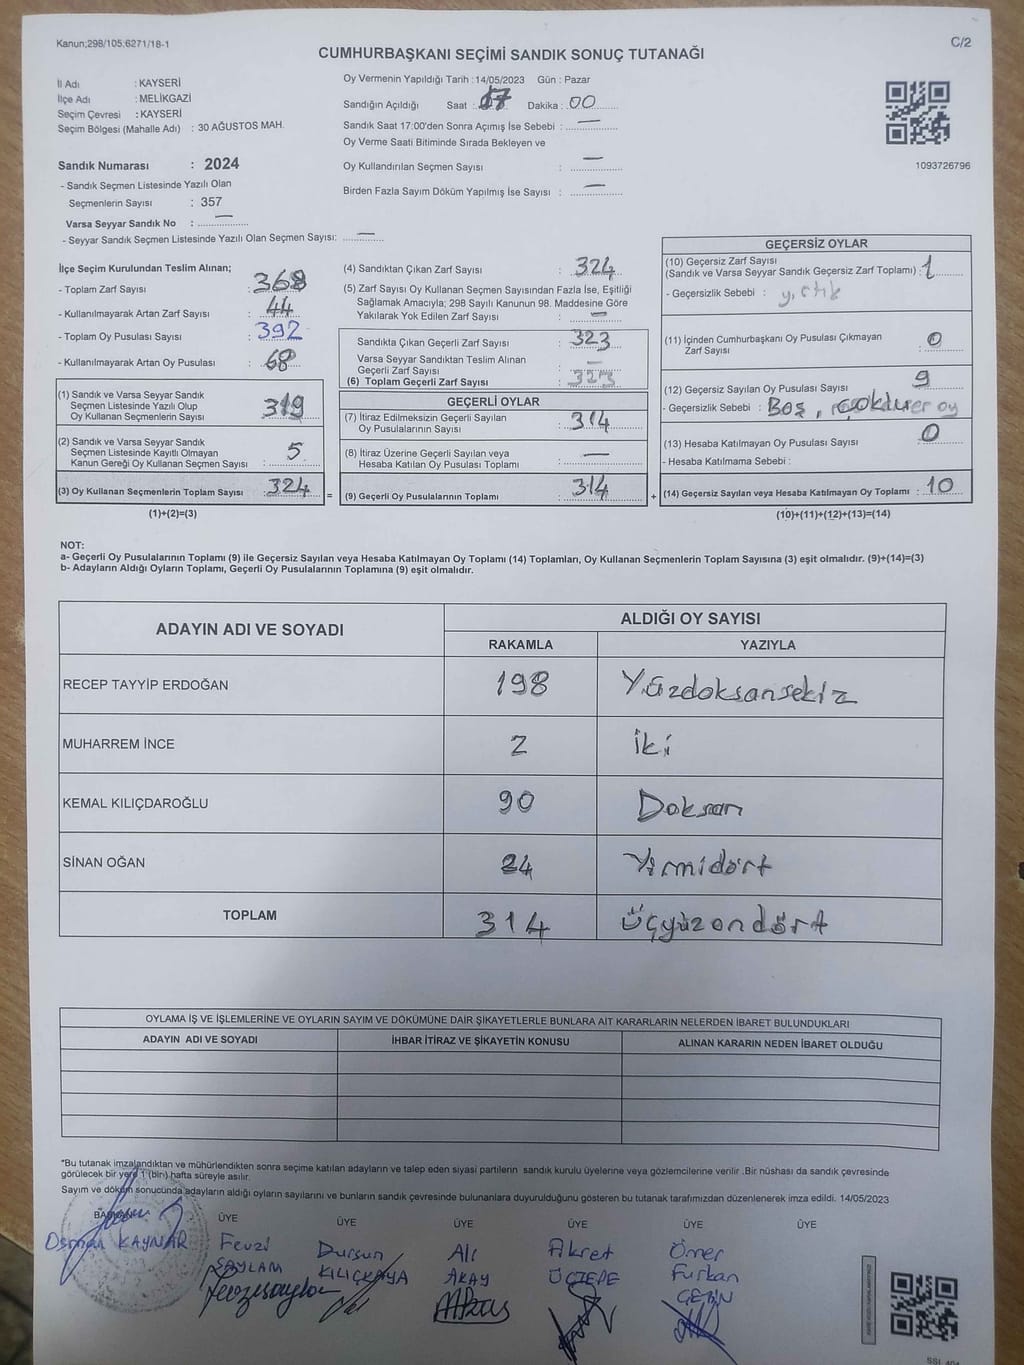 Kanun;298/105;6271/18-1
C/2
CUMHURBAŞKANI SEÇİMİ SANDIK SONUÇ TUTANAĞI
İl Adı : KAYSERİ
İlçe Adı : MELİKGAZİ
Seçim Çevresi : KAYSERİ
Seçim Bölgesi (Mahalle Adı) : 30 AĞUSTOS MAH.
Sandık Numarası : 2024
- Sandık Seçmen Listesinde Yazılı Olan
Seçmenlerin Sayısı : 357
Varsa Seyyar Sandık No : —
- Seyyar Sandık Seçmen Listesinde Yazılı Olan Seçmen Sayısı: —
Oy Vermenin Yapıldığı Tarih : 14/05/2023 Gün : Pazar
Sandığın Açıldığı Saat : 17 Dakika : 00
Sandık Saat 17:00'den Sonra Açımış İse Sebebi : —
Oy Verme Saati Bitiminde Sırada Bekleyen ve
Oy Kullandırılan Seçmen Sayısı : —
Birden Fazla Sayım Döküm Yapılmış İse Sayısı : —
1093726796
İlçe Seçim Kurulundan Teslim Alınan;
- Toplam Zarf Sayısı : 368
- Kullanılmayarak Artan Zarf Sayısı : 44
- Toplam Oy Pusulası Sayısı : 392
- Kullanılmayarak Artan Oy Pusulası : 68
(1) Sandık ve Varsa Seyyar Sandık
Seçmen Listesinde Yazılı Olup
Oy Kullanan Seçmenlerin Sayısı : 319
(2) Sandık ve Varsa Seyyar Sandık
Seçmen Listesinde Kayıtlı Olmayan
Kanun Gereği Oy Kullanan Seçmen Sayısı : 5
(3) Oy Kullanan Seçmenlerin Toplam Sayısı : 324 =
(1)+(2)=(3)
(4) Sandıktan Çıkan Zarf Sayısı : 324
(5) Zarf Sayısı Oy Kullanan Seçmen Sayısından Fazla İse, Eşitliği
Sağlamak Amacıyla; 298 Sayılı Kanunun 98. Maddesine Göre
Yakılarak Yok Edilen Zarf Sayısı : —
Sandıkta Çıkan Geçerli Zarf Sayısı : 323
Varsa Seyyar Sandıktan Teslim Alınan
Geçerli Zarf Sayısı : —
(6) Toplam Geçerli Zarf Sayısı : 323
GEÇERLİ OYLAR
(7) İtiraz Edilmeksizin Geçerli Sayılan
Oy Pusulalarının Sayısı : 314
(8) İtiraz Üzerine Geçerli Sayılan veya
Hesaba Katılan Oy Pusulası Toplamı : —
(9) Geçerli Oy Pusulalarının Toplamı : 314 +
GEÇERSİZ OYLAR
(10) Geçersiz Zarf Sayısı
(Sandık ve Varsa Seyyar Sandık Geçersiz Zarf Toplamı) : 1
- Geçersizlik Sebebi : yırtık
(11) İçinden Cumhurbaşkanı Oy Pusulası Çıkmayan
Zarf Sayısı : 0
(12) Geçersiz Sayılan Oy Pusulası Sayısı : 9
- Geçersizlik Sebebi : Boş, oy
(13) Hesaba Katılmayan Oy Pusulası Sayısı : 0
- Hesaba Katılmama Sebebi :
(14) Geçersiz Sayılan veya Hesaba Katılmayan Oy Toplamı : 10
(10)+(11)+(12)+(13)=(14)
NOT:
a- Geçerli Oy Pusulalarının Toplamı (9) ile Geçersiz Sayılan veya Hesaba Katılmayan Oy Toplamı (14) Toplamları, Oy Kullanan Seçmenlerin Toplam Sayısına (3) eşit olmalıdır. (9)+(14)=(3)
b- Adayların Aldığı Oyların Toplamı, Geçerli Oy Pusulalarının Toplamına (9) eşit olmalıdır.
ADAYIN ADI VE SOYADI ALDIĞI OY SAYISI
RAKAMLA YAZIYLA
RECEP TAYYİP ERDOĞAN 198 Yüzdoksansekiz
MUHARREM İNCE 2 İki
KEMAL KILIÇDAROĞLU 90 Doksan
SİNAN OĞAN 24 Yirmidört
TOPLAM 314 Üçyüzondört
OYLAMA İŞ VE İŞLEMLERİNE VE OYLARIN SAYIM VE DÖKÜMÜNE DAİR ŞİKAYETLERLE BUNLARA AİT KARARLARIN NELERDEN İBARET BULUNDUKLARI
ADAYIN ADI VE SOYADI İHBAR İTİRAZ VE ŞİKAYETİN KONUSU ALINAN KARARIN NEDEN İBARET OLDUĞU
*Bu tutanak imzalandıktan ve mühürlendikten sonra seçime katılan adayların ve talep eden siyasi partilerin sandık kurulu üyelerine veya gözlemcilerine verilir .Bir nüshası da sandık çevresinde
görülecek bir yere 1 (bin) hafta süreyle asılır.
Sayım ve döküm sonucunda adayların aldığı oyların sayılarını ve bunların sandık çevresinde bulunanlara duyurulduğunu gösteren bu tutanak tarafımızdan düzenlenerek imza edildi. 14/05/2023
BAŞKAN ÜYE ÜYE ÜYE ÜYE ÜYE ÜYE
Osman KAYNAR Fevzi Dursun Ali Fikret Ömer
SAYLAM KILIÇKAYA AKAY ÜÇTEPE Furkan